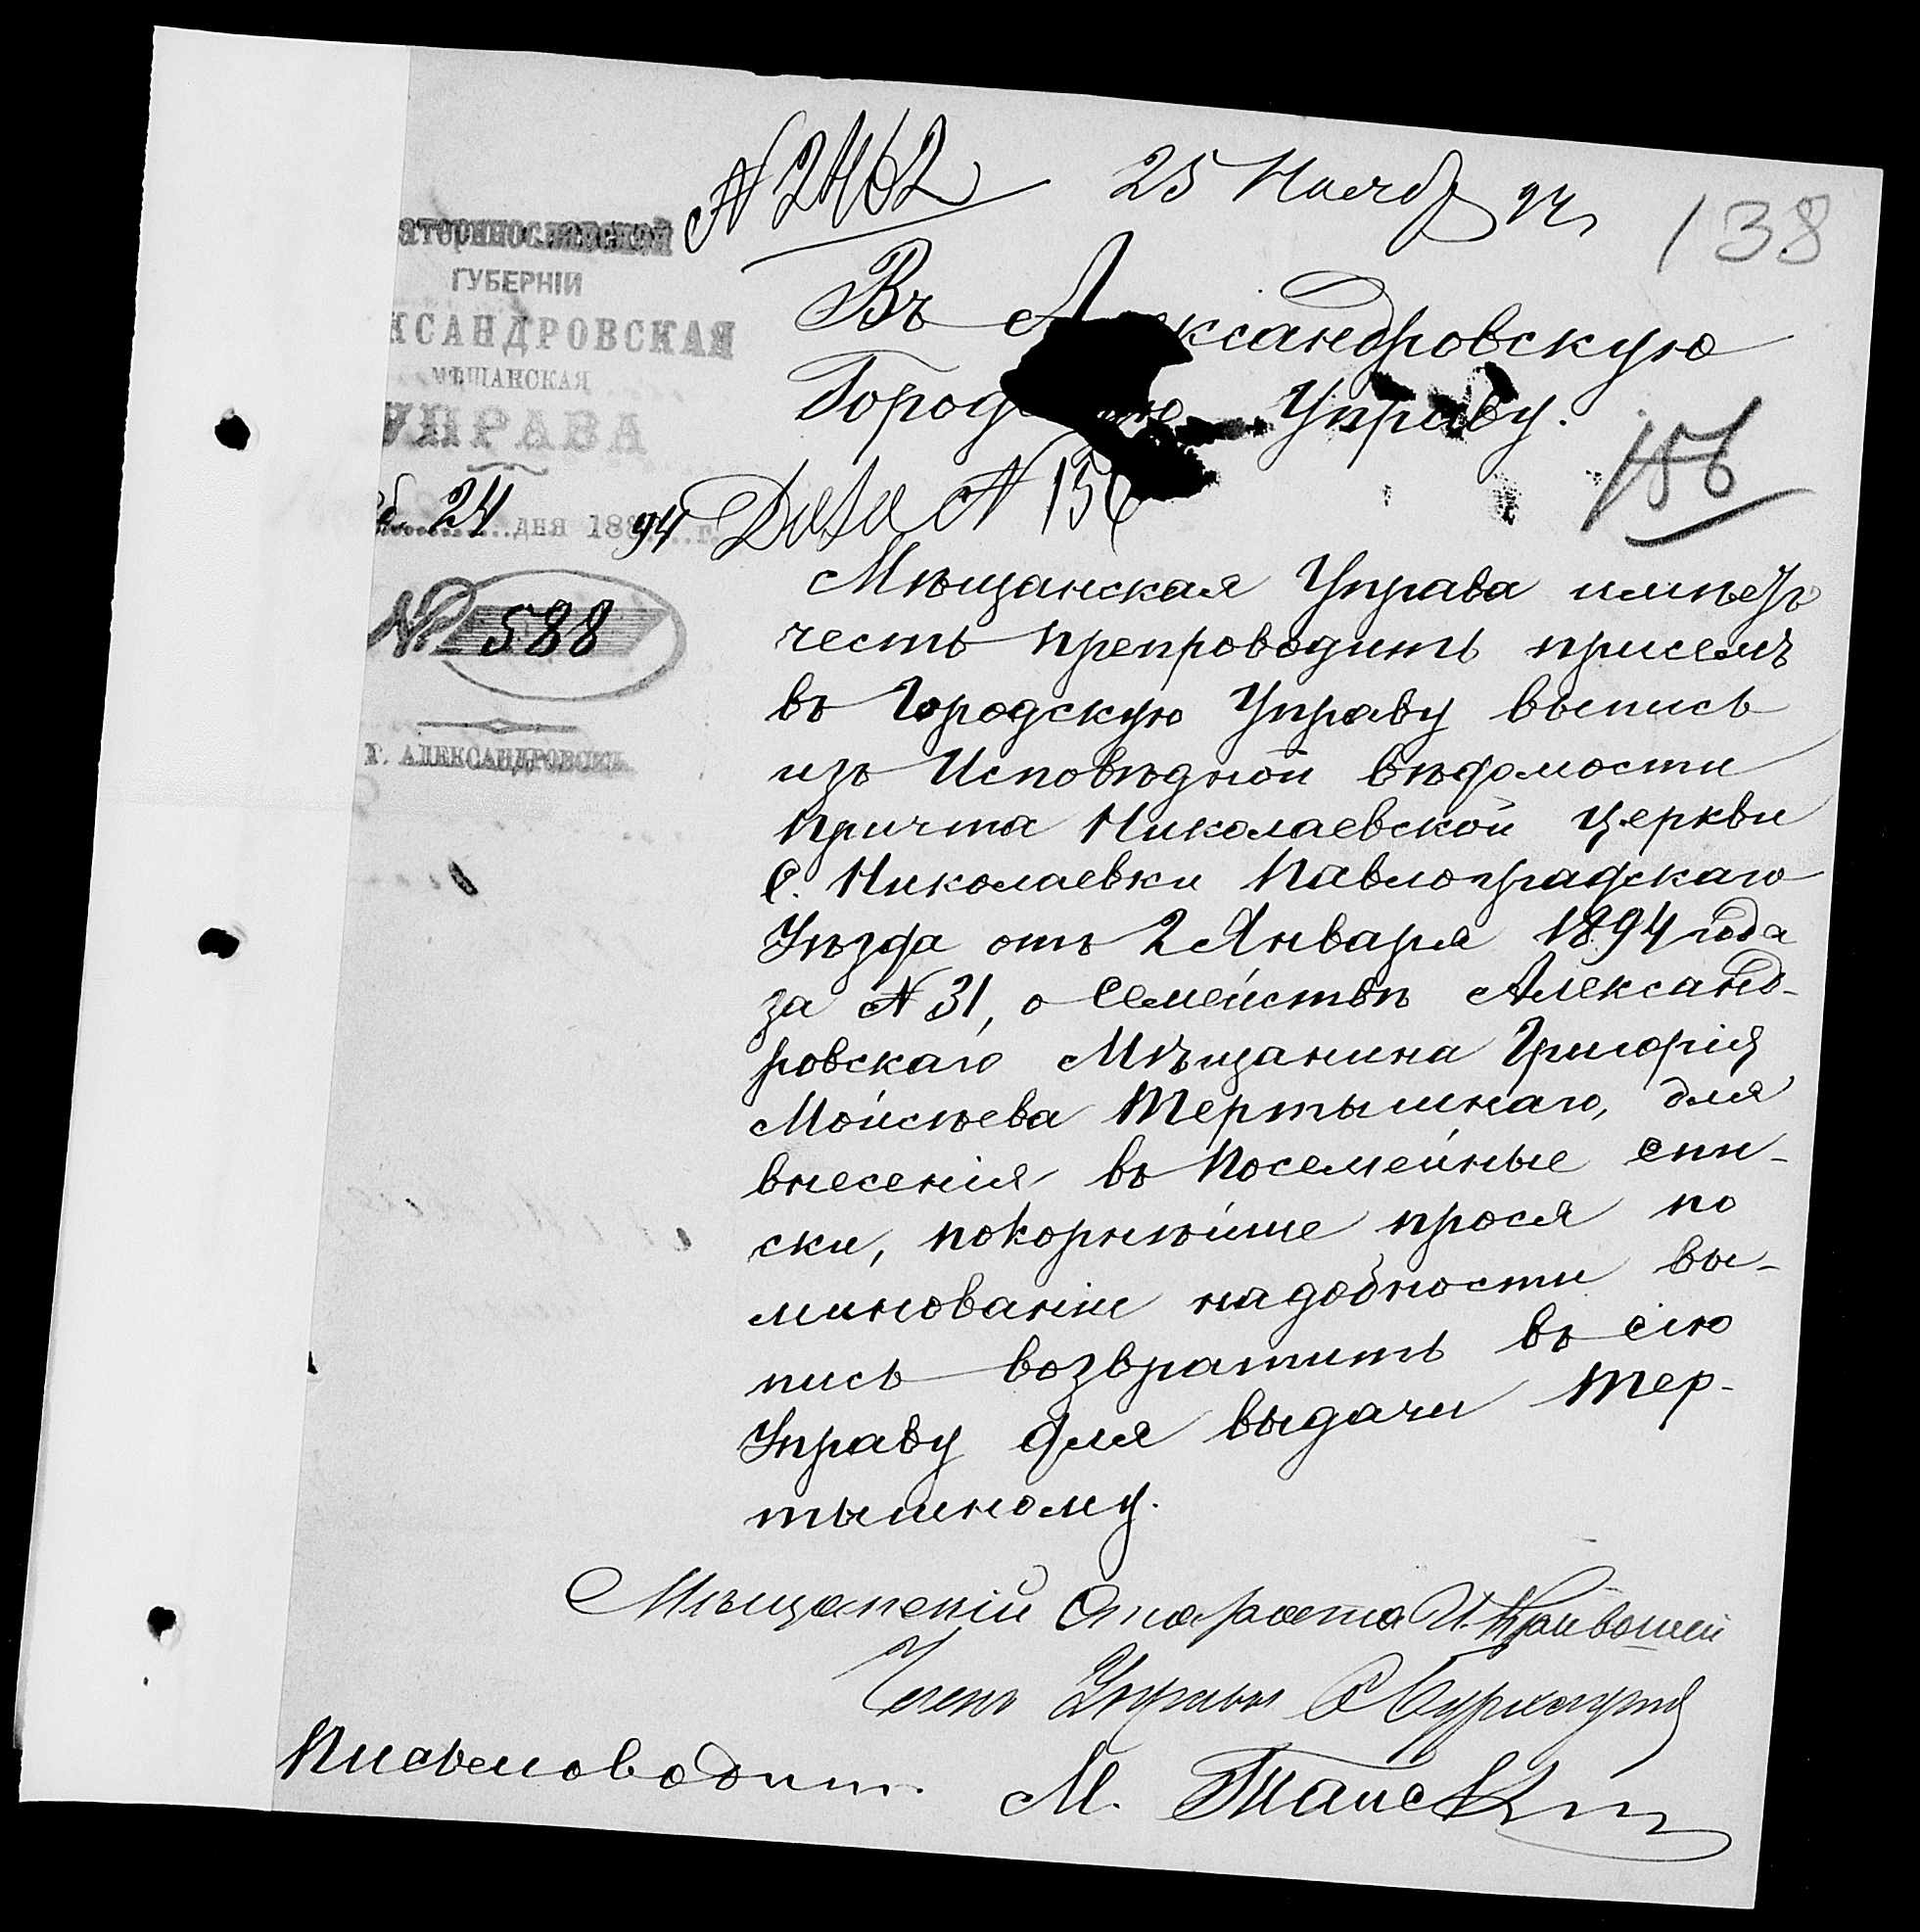 № 2462 25 Ноябр 94
138
аторинославской
ГУБЕРНІИ
КСАНДРОВСКАЯ
МѢЩАНСКАЯ
УПРАВА
24 дня 188 94 г.
№ 588
Г. АЛЕКСАНДРОВСКЪ
Въ Александровскую
Городскую Управу.
156
Дѣло № 156
Мѣщанская Управа имѣетъ
честь препроводить присемъ
въ Городскую Управу выпись
изъ Исповѣдной вѣдомости
причта Николаевской Церкви
С. Николаевки Павлоградскаго
Уѣзда отъ 2 Января 1894 года
за № 31, о Семействѣ Александ-
ровскаго Мѣщанина Григорія
Мойсѣева Тертышнаго, для
внесенія въ посемейные спи-
ски, покорнѣйше прося по
минованіи надобности вы-
пись возвратить въ сію
Управу для выдачи Тер-
тышному.
Мѣщанскій Староста И. Кривошей
Членъ Управы
Письмоводит.
М.